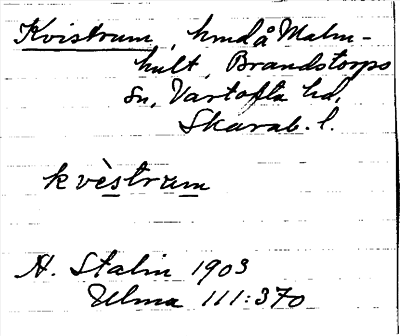 Kvistrum, hmd å Malm-
hult, Brandstorps
sn, Vartofta hd,
Skarab. l.
kvèstrum
H. Stalin 1903
Ulma 111:370